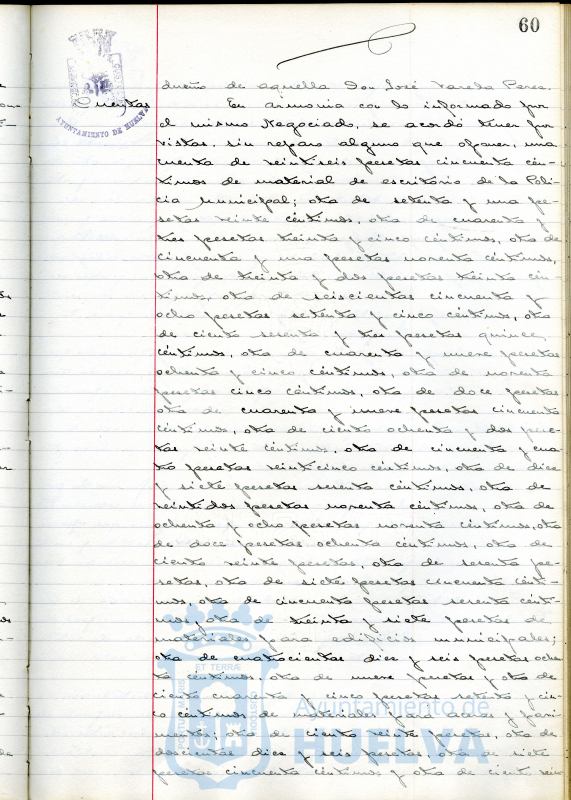 60
dueño de aquella Don José Varela Perez.
Cuentas
En armonia con lo informado por
el mismo Negociado, se acordó tener por
vistas, sin reparo alguno que oponer, una
cuenta de veintiseis pesetas cincuenta cén-
timos de material de escritorio de la Poli-
cia Municipal; otra de setenta y una pe-
setas veinte céntimos, otra de cuarenta y
tres pesetas treinta y cinco céntimos, otra de
cincuenta y una pesetas noventa céntimos,
otra de treinta y dos pesetas treinta cén-
timos, otra de seiscientas cincuenta y
ocho pesetas setenta y cinco céntimos, otra
de ciento sesenta y tres pesetas quince
céntimos, otra de cuarenta y nueve pesetas
ochenta y cinco céntimos, otra de noventa
pesetas cinco céntimos, otra de doce pesetas
otra de cuarenta y nueve pesetas cincuenta
céntimos, otra de ciento ochenta y dos pese-
tas veinte céntimos, otra de cincuenta y cua-
tro pesetas veinticinco céntimos, otra de diez
y siete pesetas sesenta céntimos, otra de
veintidos pesetas noventa céntimos, otra de
ochenta y ocho pesetas noventa céntimos, otra
de doce pesetas ochenta céntimos, otra de
ciento veinte pesetas, otra de sesenta pe-
setas, otra de siete pesetas cincuenta cénti-
mos, otra de cincuenta pesetas sesenta cénti-
mos, otra de treinta y siete pesetas de
materiales para edificios municipales;
otra de cuatrocientas diez y seis pesetas ochen-
ta céntimos otra de nueve pesetas y otra de
ciento cuarenta y cinco pesetas setenta y cin-
co céntimos de materiales para aceras y pavi-
mentos; otra de ciento veinte pesetas, otra de
doscientas diez y seis pesetas, otra de siete
pesetas cincuenta céntimos y otra de ciento
AYUNTAMIENTO DE HUELVA
Ayuntamiento de
HUELVA